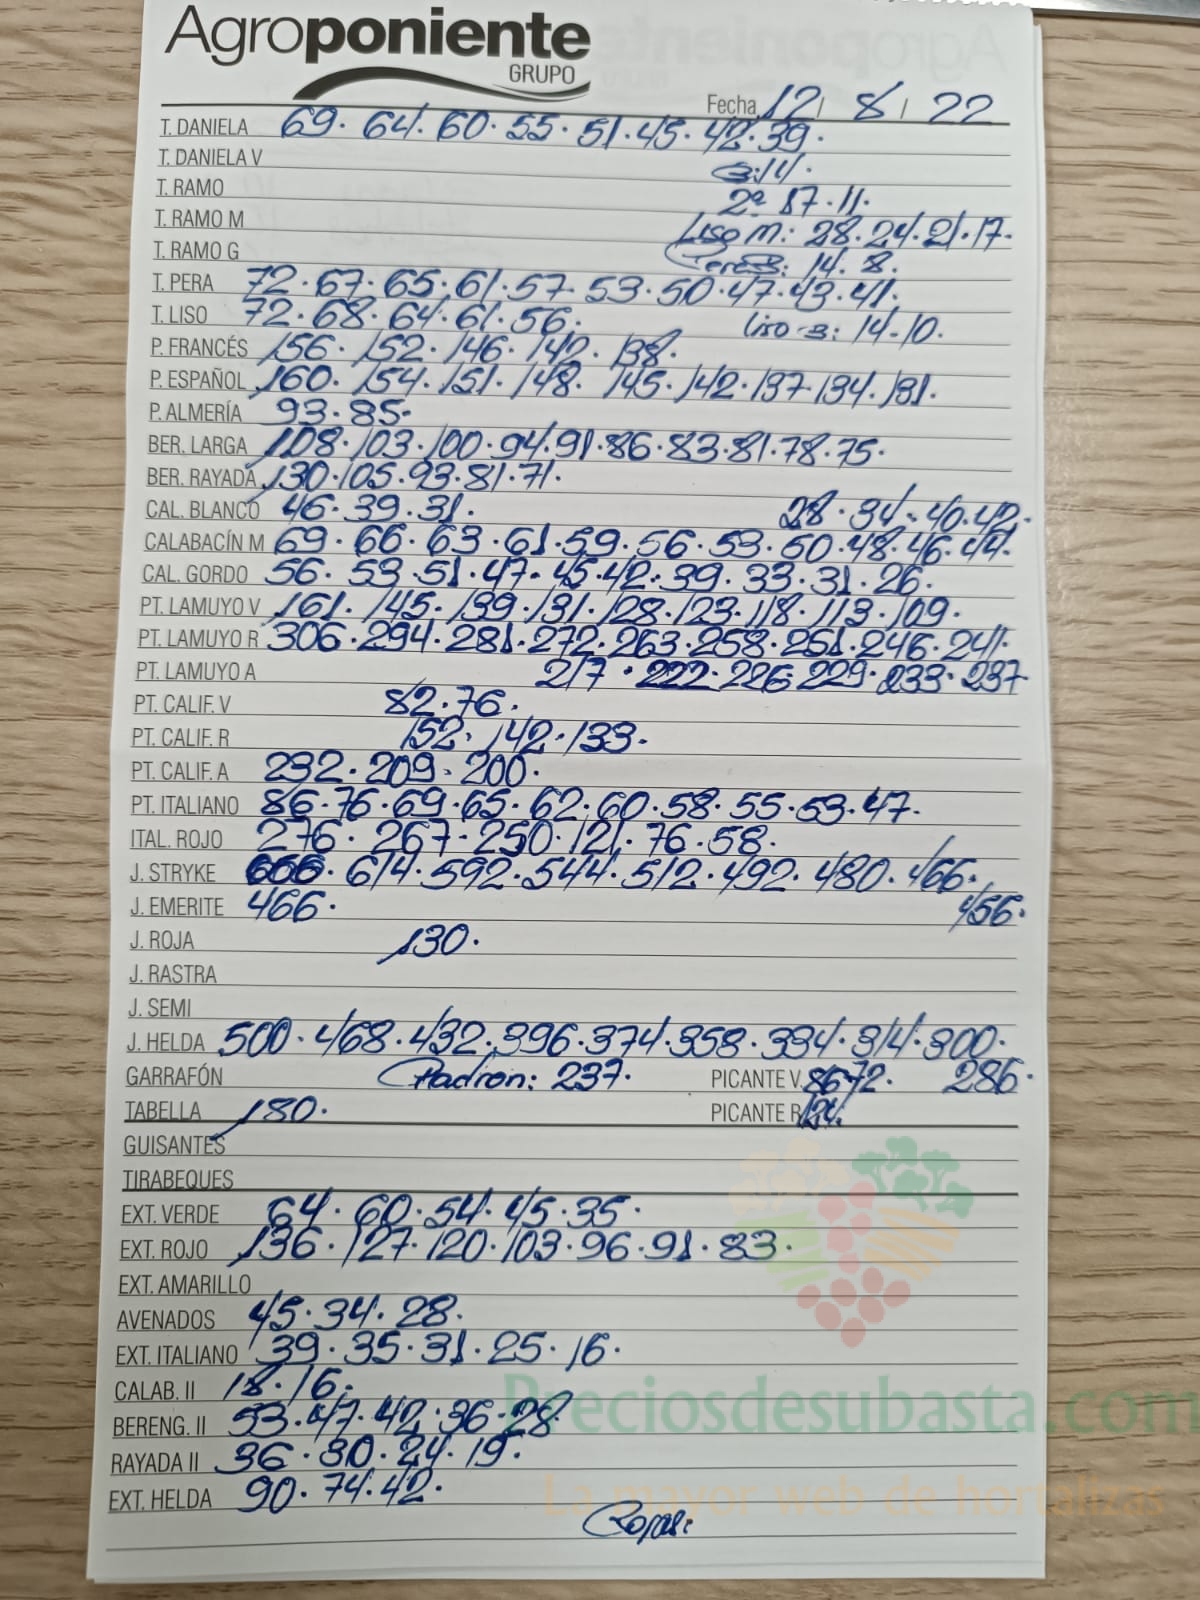 Agroponiente
GRUPO
Fecha 12 / 8 / 22
T. DANIELA 69. 64. 60. 55. 51. 45. 42. 39.
T. DANIELA V B: 11.
T. RAMO 2ª 87. 11.
T. RAMO M Liso M: 28. 24. 21. 17.
T. RAMO G Pera B: 14. 8.
T. PERA 72. 67. 65. 61. 57. 53. 50. 47. 43. 41.
T. LISO 72. 68. 64. 61. 56. Liso B: 14. 10.
P. FRANCÉS 156. 152. 146. 142. 138.
P. ESPAÑOL 160. 154. 151. 148. 145. 142. 137. 134. 131.
P. ALMERÍA 93. 85.
BER. LARGA 108. 103. 100. 94. 91. 86. 83. 81. 78. 75.
BER. RAYADA 130. 105. 93. 81. 71.
CAL. BLANCO 46. 39. 31. 28. 34. 40. 42.
CALABACÍN M 69. 66. 63. 61. 59. 56. 53. 50. 48. 46. 44.
CAL. GORDO 56. 53. 51. 47. 45. 42. 39. 33. 31. 26.
PT. LAMUYO V 161. 145. 139. 131. 128. 123. 118. 113. 109.
PT. LAMUYO R 306. 294. 281. 272. 263. 258. 251. 246. 241.
PT. LAMUYO A 217. 222. 226. 229. 233. 237
PT. CALIF. V 82. 76.
PT. CALIF. R 152. 142. 133.
PT. CALIF. A 232. 209. 200.
PT. ITALIANO 86. 76. 69. 65. 62. 60. 58. 55. 53. 47.
ITAL. ROJO 276. 267. 250. 121. 76. 58.
J. STRYKE 666. 614. 592. 544. 512. 492. 480. 466.
J. EMERITE 466. 456.
J. ROJA 130.
J. RASTRA
J. SEMI
J. HELDA 500. 468. 432. 396. 374. 358. 334. 314. 300.
GARRAFÓN Padron: 237. PICANTE V. 86 72. 286.
TABELLA 180. PICANTE R 124.
GUISANTES
TIRABEQUES
EXT. VERDE 64. 60. 54. 45. 35.
EXT. ROJO 136. 127. 120. 103. 96. 91. 83.
EXT. AMARILLO
AVENADOS 45. 34. 28.
EXT. ITALIANO 39. 35. 31. 25. 16.
CALAB. II 18. 16.
Preciosdesubasta.com
BERENG. II 53. 47. 42. 36. 28.
RAYADA II 36. 30. 24. 19.
EXT. HELDA 90. 74. 42.
La mayor web de hortalizas
Rojas: